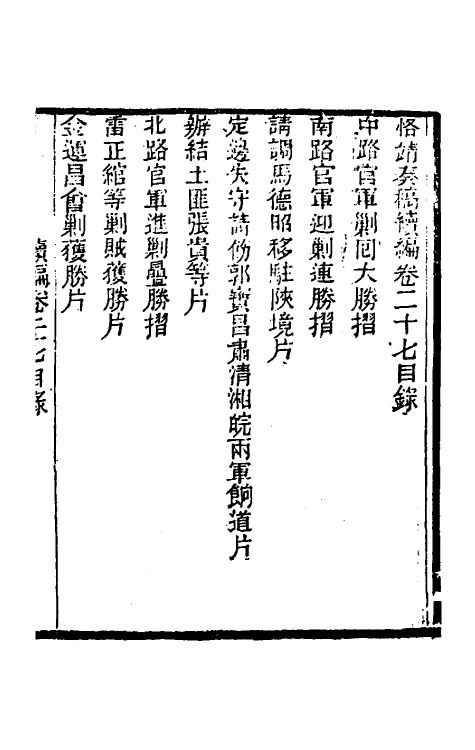 恪靖奏稿續編卷二十七目錄
中路官軍剿回大勝摺
南路官軍迎剿連勝摺
請調馬德昭移駐陝境片
定邊失守請飭郭寶昌肅清湘皖兩軍餉道片
辦結土匪張貴等片
北路官軍進剿疊勝摺
雷正綰等剿賊獲勝片
金運昌會剿獲勝片
續編卷二七目錄